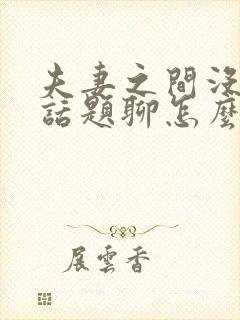 夫妻之間沒
話題聊怎麼
展雲香